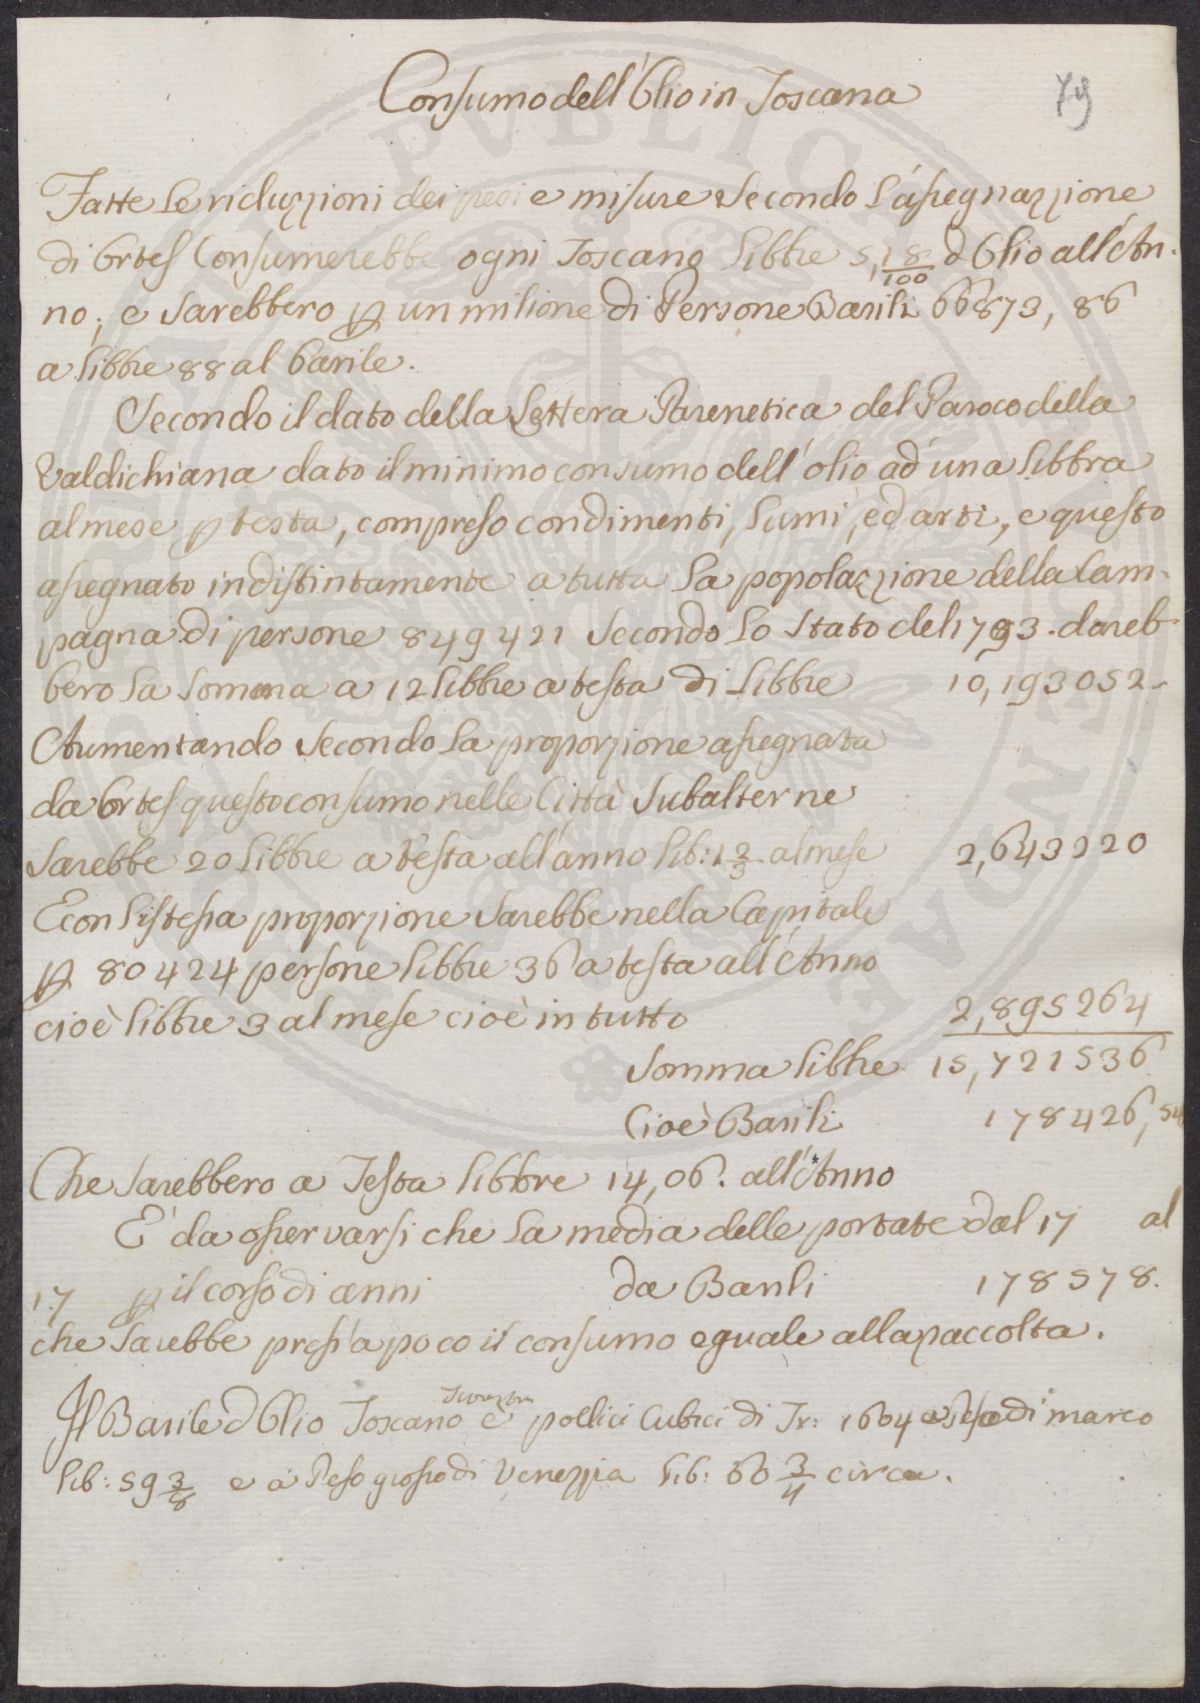 Consumo dell'Olio in Toscana
79
Fatte le riduzzioni dei pesi e misure secondo l'assegnazzione
di Ortes Consumerebbe ogni Toscano libbre 5,18/100 d'Olio all'An-
no; e sarebbero p un milione di Persone Barili 66873, 86
a libbre 88 al barile.
Secondo il dato della Lettera Parenetica del Paroco della
Valdichiana dato il minimo consumo dell'olio ad una libbra
al mese p testa, compreso condimenti, lumi, ed arti, e questo
assegnato indistintamente a tutta la popolazzione della Cam-
pagna di persone 849421 secondo lo stato del 1793. dareb-
bero la somma a 12 libbre a testa di libbre 10,193052.
Aumentando secondo la proporzione assegnata
da Ortes questo consumo nelle Città Subalterne
sarebbe 20 libbre a testa all'anno lib: 1 2/3 al mese 2,643220
E con l'istessa proporzione sarebbe nella Capitale
p 80424 persone libbre 36 a testa all'Anno
cioè libbre 3 al mese cioè in tutto 2,895264
Somma libbre 15,721536
Cioè Barili 178426, 54
Che sarebbero a Testa libbre 14,06. all'Anno
E' da osservarsi che la media delle portate dal 17 al
17 p il corso di anni da Barili 178578.
che sarebbe press'a poco il consumo eguale alla raccolta.
Il Barile d'Olio Toscano è pollici Cubici di Fr: 1604 a Peso di marco
lib: 59 3/8 e a Peso grosso di Venezzia lib: 60 3/4 circa.